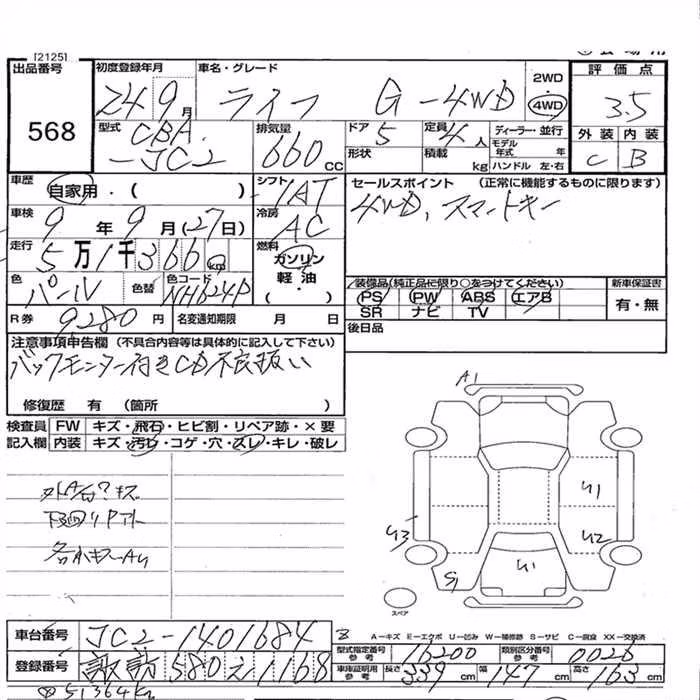 [2125]
出品番号
568
初度登録年月 車名・グレード
24 9月 ライフ G-4WD
2WD
4WD
評価点
3.5
外装 内装
C B
型式 CBA-JC2
排気量 660 CC
ドア 5
形状
定員 4人
積載 kg
ディーラー・並行
モデル年式 年
ハンドル 左・右
車歴 自家用・( )
シフト IAT
車検 9年9月(27日)
冷房 AC
走行 5万1千366km
燃料 ガソリン
軽油
( ・ )
色 パール 色替 色コード NH624P
R券 9280円 名変通知期限 月 日
セールスポイント (正常に機能するものに限ります)
4WD、スマートキー
装備品(純正品に限り○をつけてください)
PS PW ABS エアB
SR ナビ TV
新車保証書
有・無
後日品
注意事項申告欄 (不具合内容等は具体的に記入して下さい)
バックモニター付きCD不良扱い
修復歴 有 (箇所 )
検査員 FW キズ・飛石・ヒビ割・リペア跡・×要
記入欄 内装 キズ・汚れ・コゲ・穴・スレ・キレ・破レ
A1
U1
U3
U2
U1
S1
スペア
A−キズ E−エクボ U−凹み W−補修跡 S−サビ C−腐食 XX−交換済
車台番号 JC2-1401684
登録番号 諏訪 580 え 1168
型式指定番号 参考 16200 類別区分番号 参考 0026
車庫証明用 参考 長さ 339cm 幅 147cm 高さ 163cm
51364K